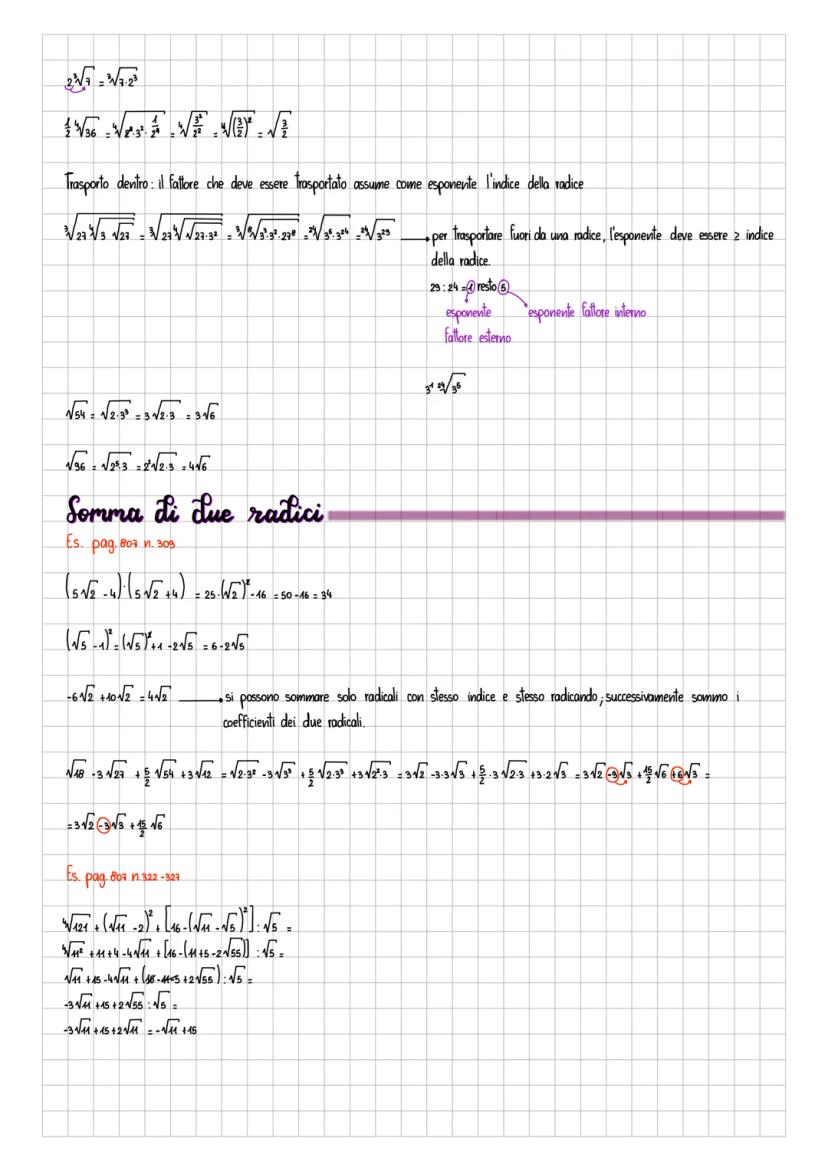 2∛7 = ∛(7·2³)
½ ∜36 = ∜(2²·3²·1/2⁴) = ∜(3²/2²) = ∜((3/2)²) = √(3/2)
Trasporto dentro: il fattore che deve essere trasportato assume come esponente l'indice della radice
per trasportare fuori da una radice, l'esponente deve essere ≥ indice
della radice.
29 : 24 = 1 resto 5
esponente esponente fattore interno
fattore esterno
3¹ ²⁴√3⁵
√54 = √(2·3³) = 3√(2·3) = 3√6
√96 = √(2⁵·3) = 2²√(2·3) = 4√6
Somma di due radici
Es. pag. 807 n. 309
(5√2 - 4)·(5√2 + 4) = 25·(√2)² - 16 = 50 - 16 = 34
(√5 - 1)² = (√5)² + 1 - 2√5 = 6 - 2√5
-6√2 + 10√2 = 4√2 si possono sommare solo radicali con stesso indice e stesso radicando; successivamente sommo i
coefficienti dei due radicali.
√18 - 3√27 + 5/2 √54 + 3√12 = √(2·3²) - 3√3³ + 5/2 √(2·3³) + 3√(2²·3) = 3√2 - 3·3√3 + 5/2·3√(2·3) + 3·2√3 = 3√2 - 9√3 + 15/2 √6 + 6√3 =
= 3√2 - 3√3 + 15/2 √6
Es. pag. 807 n. 322 - 327
∜121 + (√11 - 2)² + [16 - (√11 - √5)²] : √5 =
∜11² + 11 + 4 - 4√11 + [16 - (11 + 5 - 2√55)] : √5 =
√11 + 15 - 4√11 + (16 - 11 - 5 + 2√55) : √5 =
-3√11 + 15 + 2√55 : √5 =
-3√11 + 15 + 2√11 = -√11 + 15